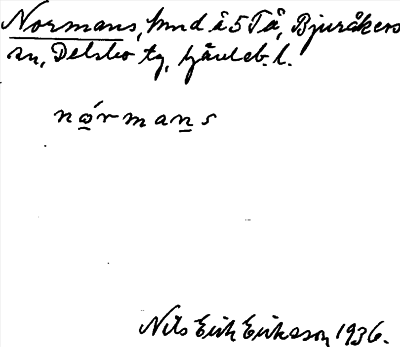 Normans, hmd å 5 Tå, Bjuråkers
sn, Delsbo tg, Gävleb. l.
nórmans
Nils Erik Eriksson 1936.